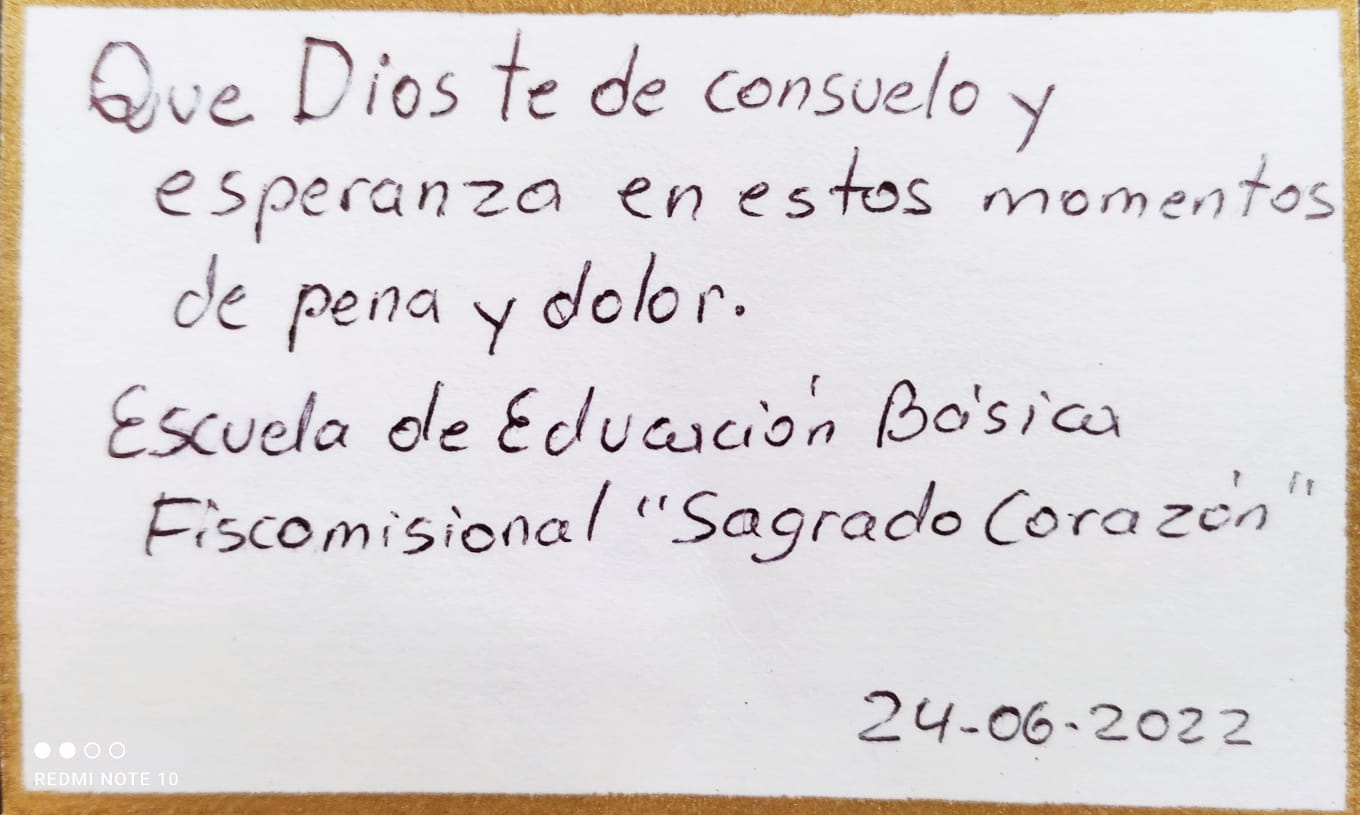 Que Dios te de consuelo y
esperanza en estos momentos
de pena y dolor.
Escuela de Educación Básica
Fiscomisional "Sagrado Corazón"
24-06-2022
REDMI NOTE 10